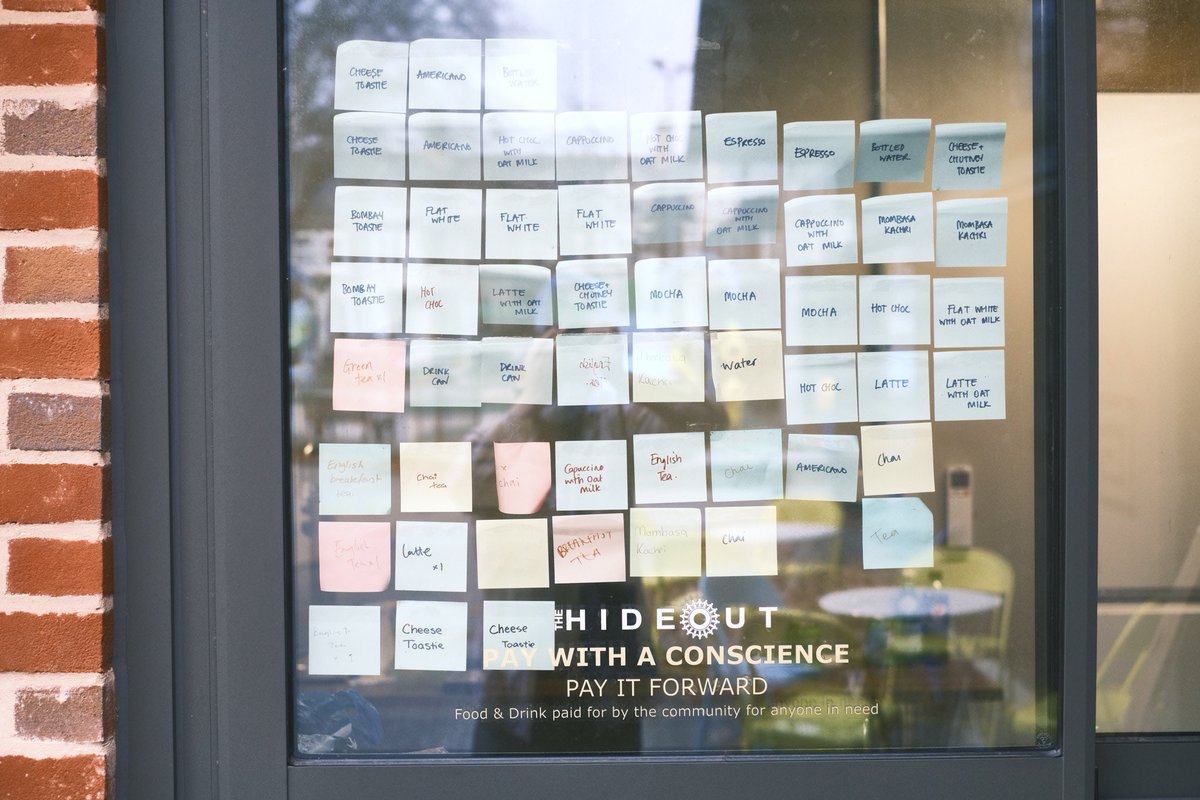 CHEESE
TOASTIE
AMERICANO
BOTTLED
WATER
CHEESE
TOASTIE
AMERICANO
HOT CHOC
WITH
OAT MILK
CAPPUCCINO
HOT CHOC
WITH
OAT MILK
ESPRESSO
ESPRESSO
BOTTLED
WATER
CHEESE +
CHUTNEY
TOASTIE
BOMBAY
TOASTIE
FLAT
WHITE
FLAT
WHITE
FLAT
WHITE
CAPPUCCINO
CAPPUCCINO
WITH
OAT MILK
CAPPUCCINO
WITH
OAT MILK
MOMBASA
KACHRI
MOMBASA
KACHRI
BOMBAY
TOASTIE
HOT
CHOC
LATTE
WITH OAT
MILK
CHEESE +
CHUTNEY
TOASTIE
MOCHA
MOCHA
MOCHA
HOT CHOC
FLAT WHITE
WITH OAT MILK
Green
tea x1
DRINK
CAN
DRINK
CAN
Mombasa
Kachri
Water
HOT CHOC
LATTE
LATTE
WITH OAT
MILK
English
breakfast
tea
Chai
tea
x
chai
Capuccino
with Oat
milk
English
Tea.
Chai
AMERICANO
Chai
English
Tea x1
Latte
x1
BREAKFAST
TEA
Mombasa
Kachri
Chai
Tea
English
Tea
x 1
Cheese
Toastie
Cheese
Toastie
THE HIDEOUT
PAY WITH A CONSCIENCE
PAY IT FORWARD
Food & Drink paid for by the community for anyone in need